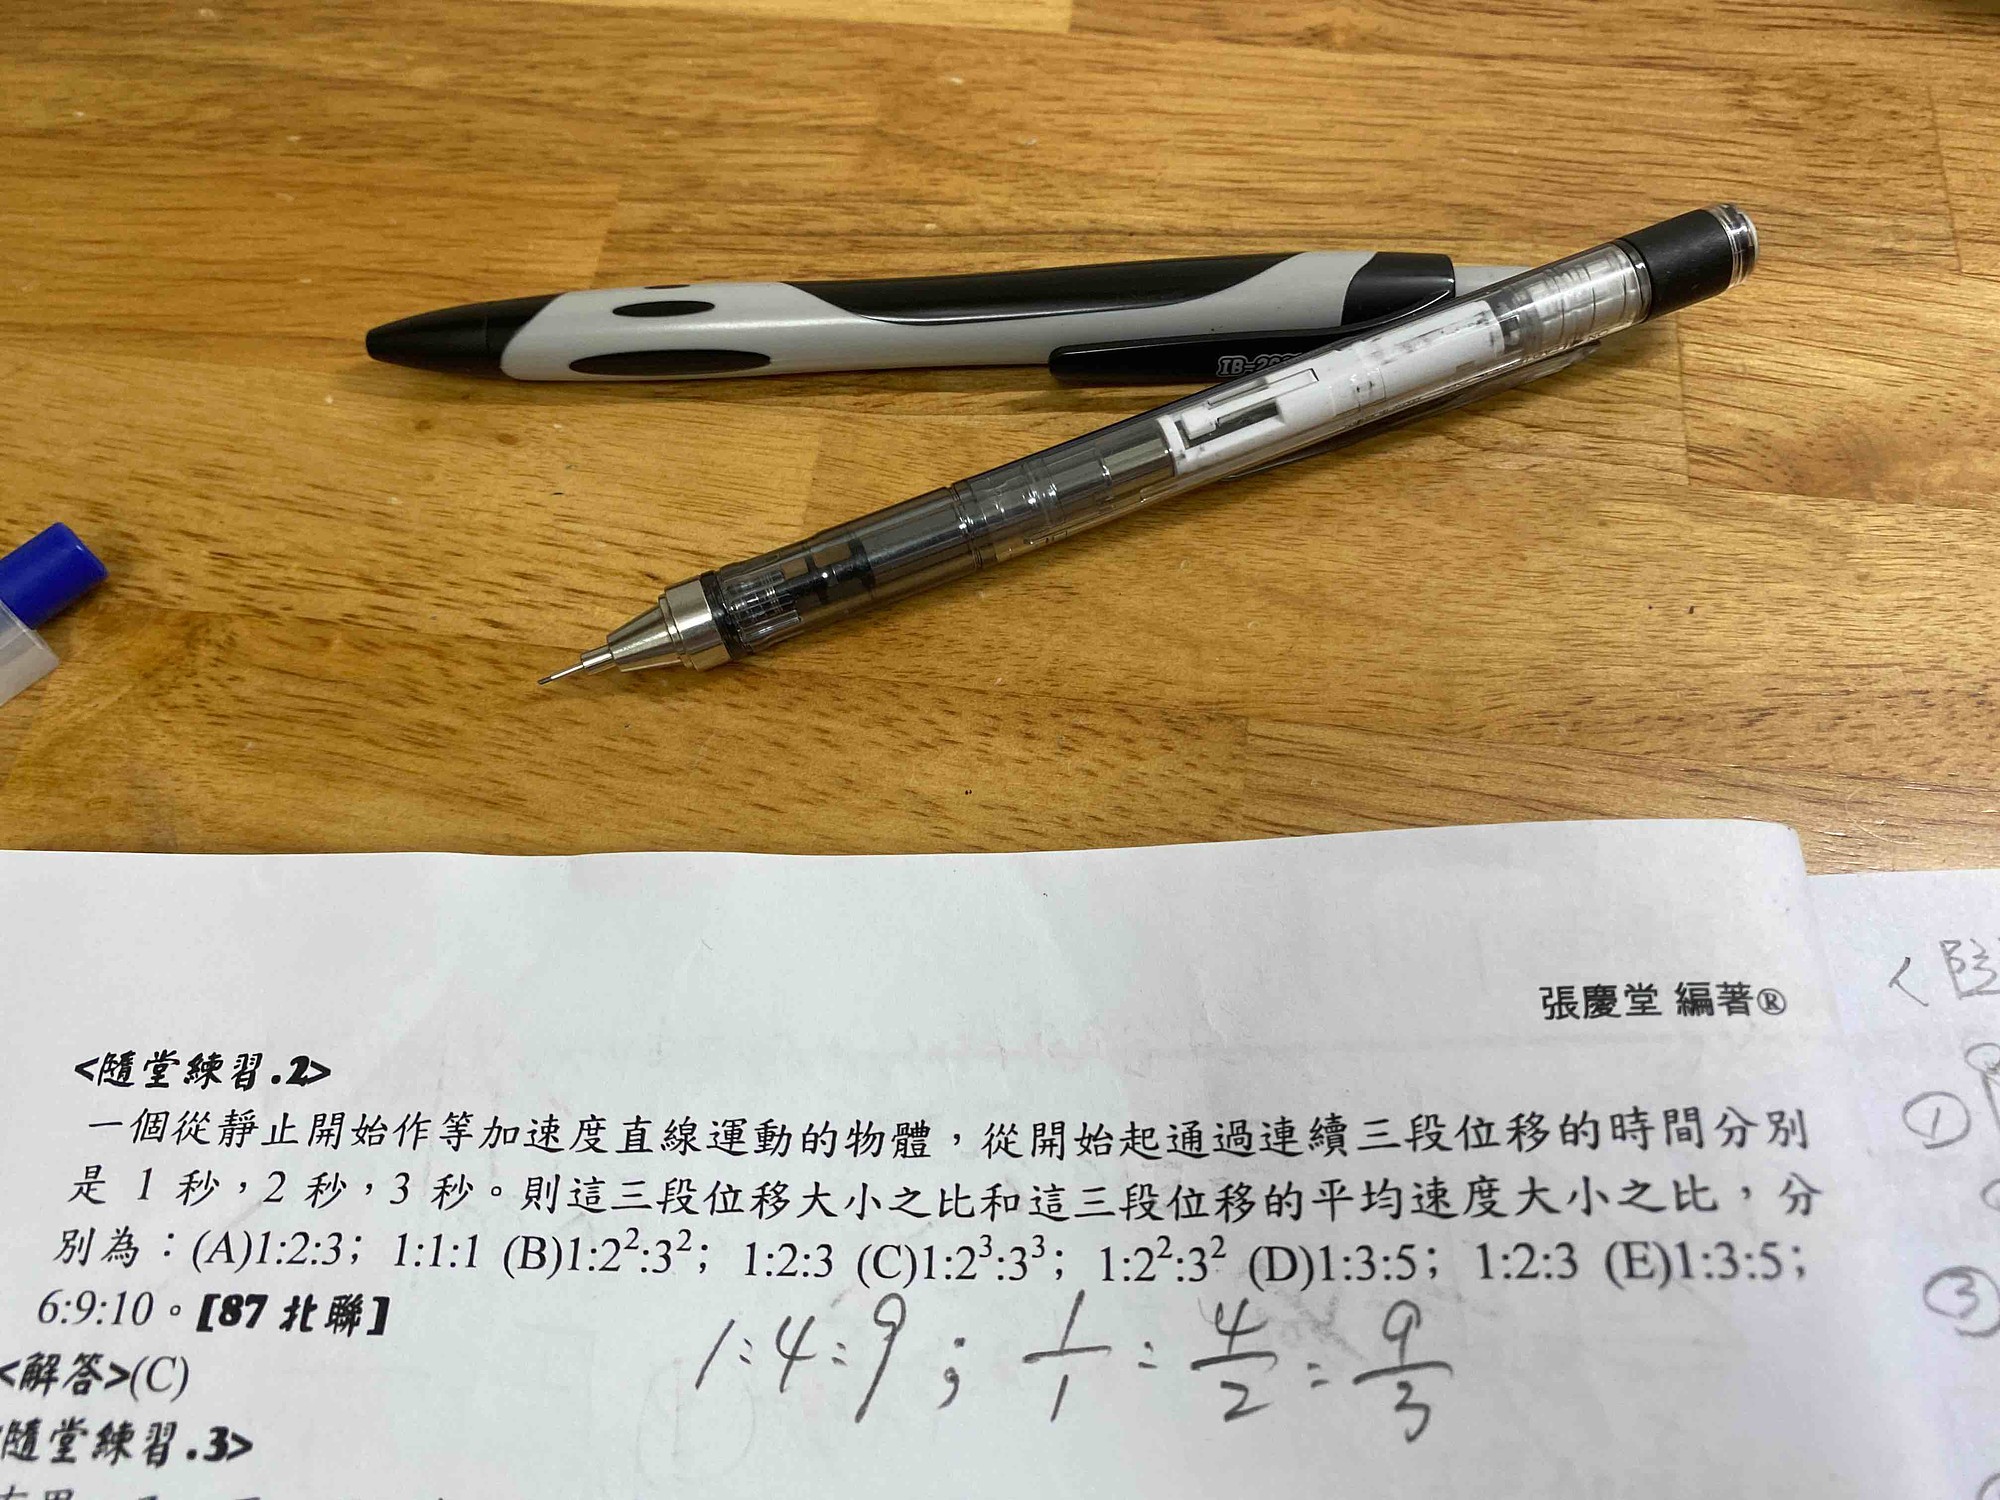 IB-20
張慶堂 編著®
<隨堂練習.2>
一個從靜止開始作等加速度直線運動的物體，從開始起通過連續三段位移的時間分別
是 1 秒，2 秒，3 秒。則這三段位移大小之比和這三段位移的平均速度大小之比，分
別為：(A)1:2:3； 1:1:1 (B)1:2²:3²； 1:2:3 (C)1:2³:3³； 1:2²:3² (D)1:3:5； 1:2:3 (E)1:3:5；
6:9:10。[87 北聯]
1:4:9 ; 1/1 : 4/2 : 9/3
<解答>(C)
隨堂練習.3>
①
③